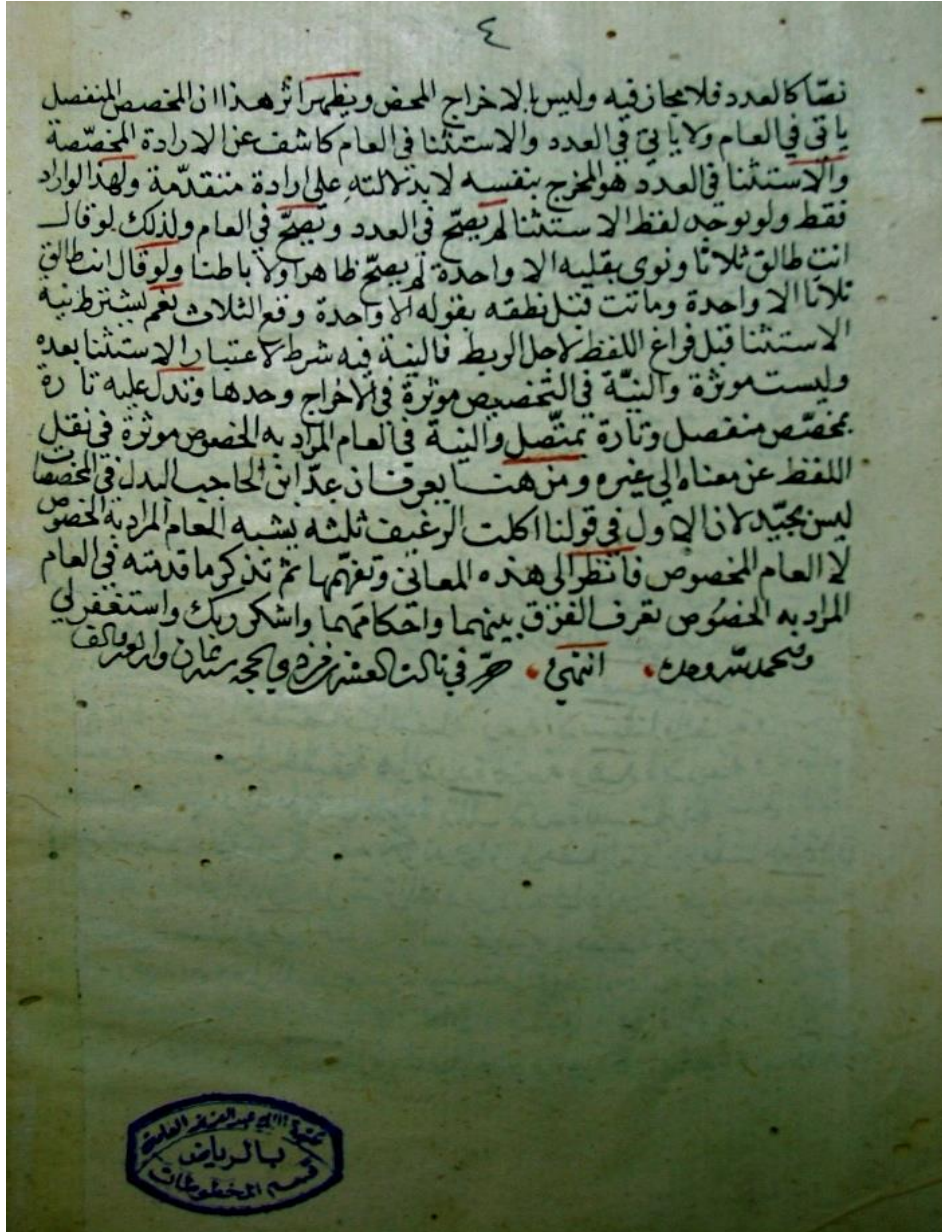 ٤
نصّا كالعدد فلا مجاز فيه وليس الا الاخراج المحض ويظهر اثر هذا ان المخصص المنفصل
ياتي في العام ولا ياتي في العدد والاستثنا في العام كاشف عن الارادة المخصّصة
والاستثنا في العدد هو المخرج بنفسه لا بدلالته على ارادة متقدّمة ولهذا لو اراد
فقط ولو يوجد لفظ الاستثنا لم يصحّ في العدد ويصحّ في العام ولذلك لو قال
انت طالق ثلاثا ونوى بقلبه الا واحدة لم يصحّ ظاهرا ولا باطنا ولو قال انت طالق
ثلاثا الا واحدة وماتت قبل نطقه بقوله الا واحدة وقع الثلاث نعم يشترط نية
الاستثنا قبل فراغ اللفظ لاجل الربط فالنية فيه شرط لاعتبار الاستثنا بعده
وليست موثرة والنيّة في التخصيص موثرة في الاخراج وحدها وتدل عليه تارة
بمخصّص منفصل وتارة بمتّصل والنية في العام المراد به الخصوص موثرة في نقل
اللفظ عن معناه الى غيره ومن هنا يعرف ان عدّ ابن الحاجب البدل في المخصصات
ليس بجيّد لان الاول في قولنا اكلت الرغيف ثلثه يشبه العام المراد به الخصوص
لا العام المخصوص فانظر الى هذه المعاني وتفهّمها ثم تذكر ما قدمته في العام
المراد به الخصُوص تعرف الفرق بينهما واحكامهما واشكر ربك واستغفر لي
والحمد لله وحده انتهى حرر في ثالث العشر من ذي الحجه سنة ثمان واربعين والف
عبد العزيز العامة
بالرياض
قسم المخطوطات